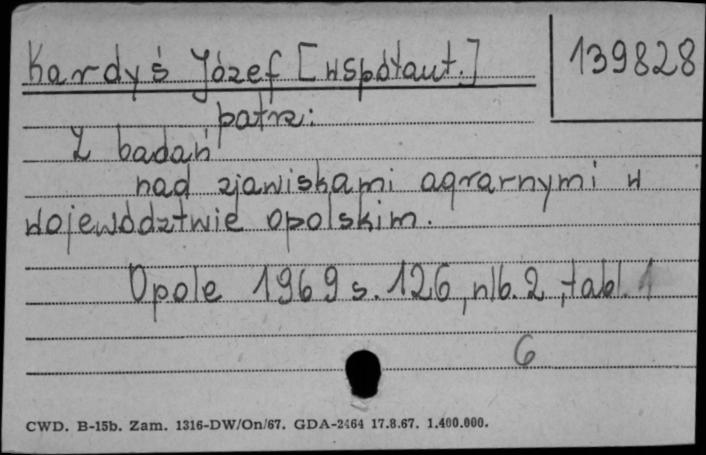 Kardyś Józef [współaut.]
139828
patrz:
Z badań
nad zjawiskami agrarnymi w
województwie opolskim.
Opole 1969 s. 126, nlb. 2, tabl. 1
6
CWD. B-15b. Zam. 1316-DW/On/67. GDA-2464 17.8.67. 1.400.000.